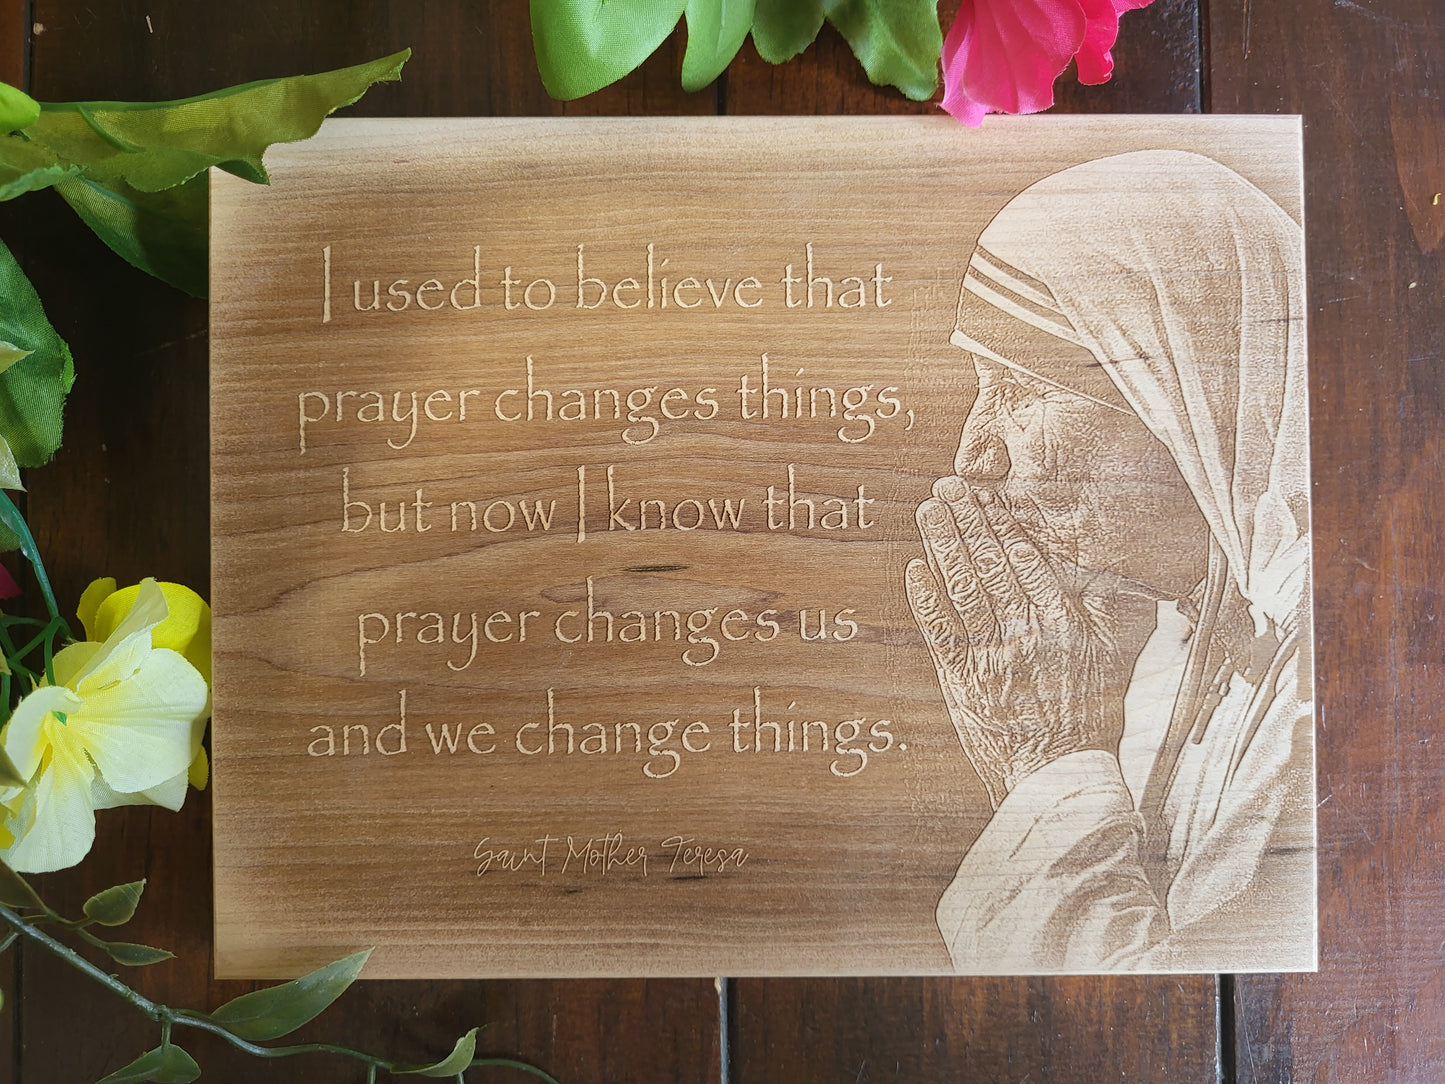 I used to believe that
prayer changes things,
but now I know that
prayer changes us
and we change things.
Saint Mother Teresa